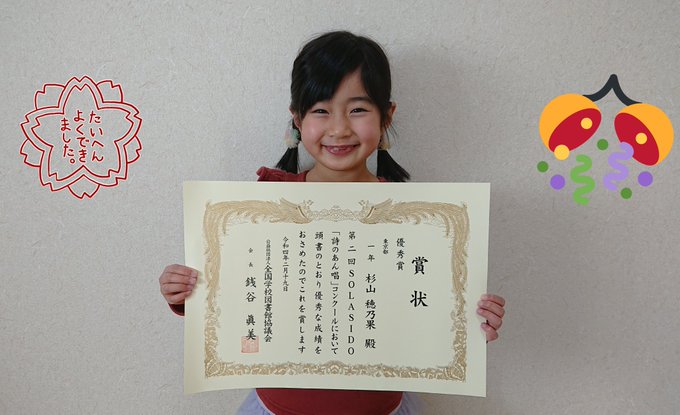 たいへん
よくでき
ました。
賞状
優秀賞
東京都
一年 杉山 穂乃果 殿
第二回SOLASIDO
「詩のあん唱」コンクールにおいて
頭書のとおり優秀な成績を
おさめたのでこれを賞します
令和四年二月十九日
公益社団法人全国学校図書館協議会
会長 銭谷 眞美